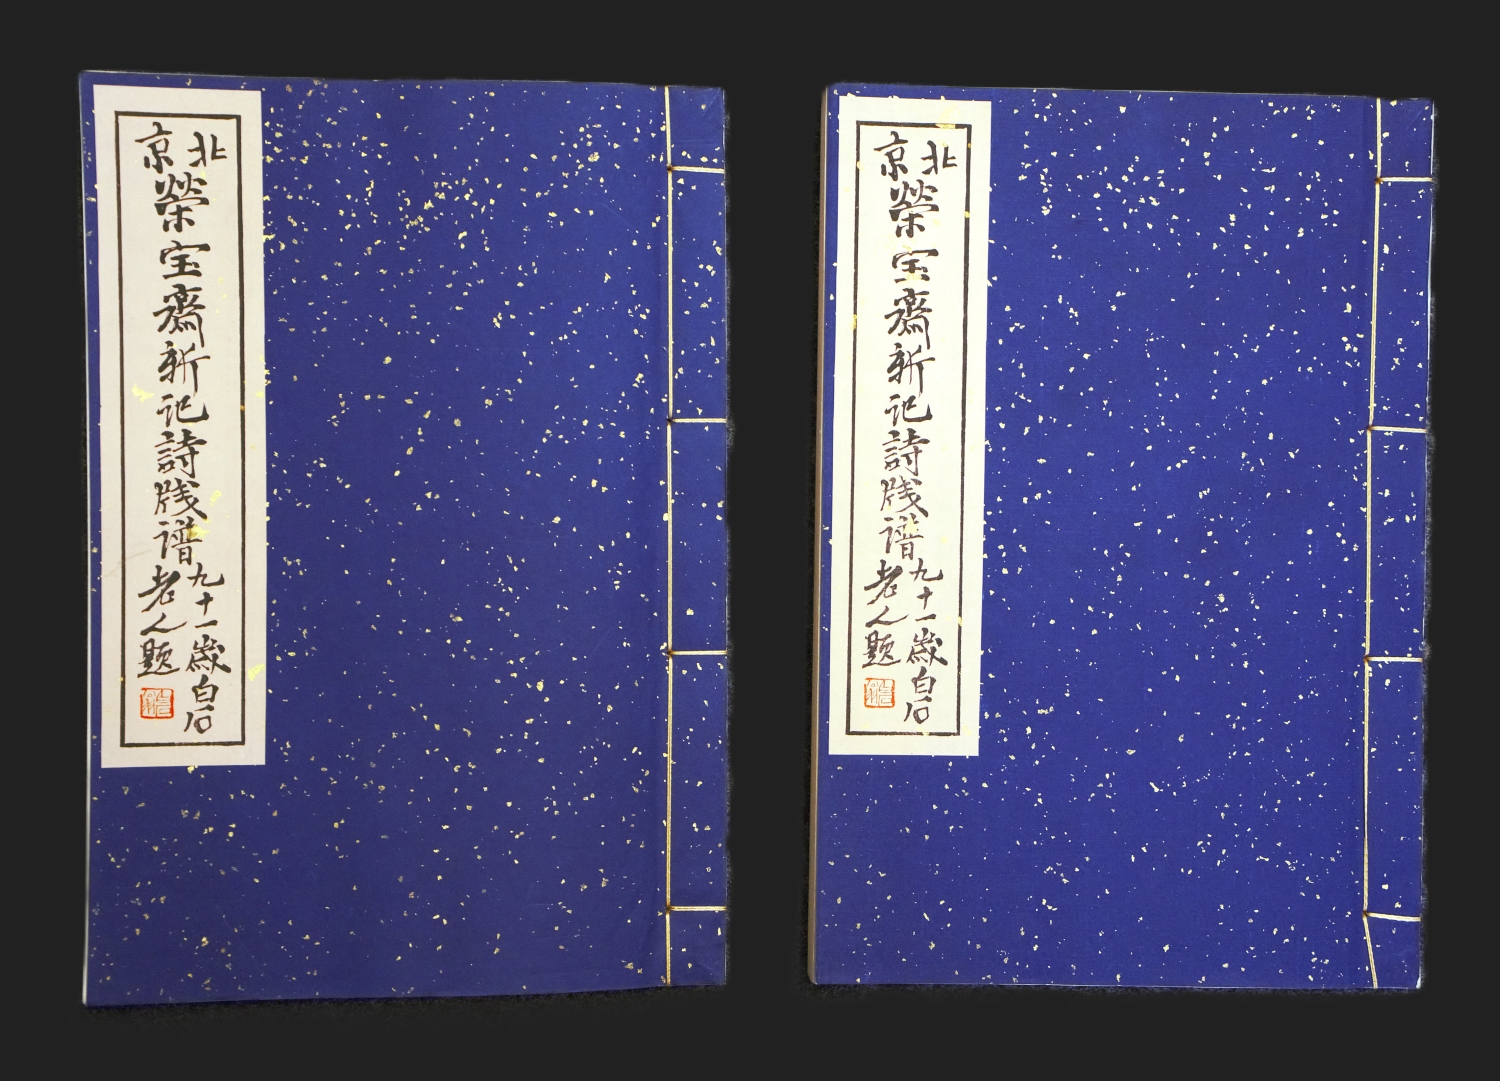 北京榮宝齋新记詩牋谱
九十一歲白石
老人题
北京榮宝齋新记詩牋谱
九十一歲白石
老人题